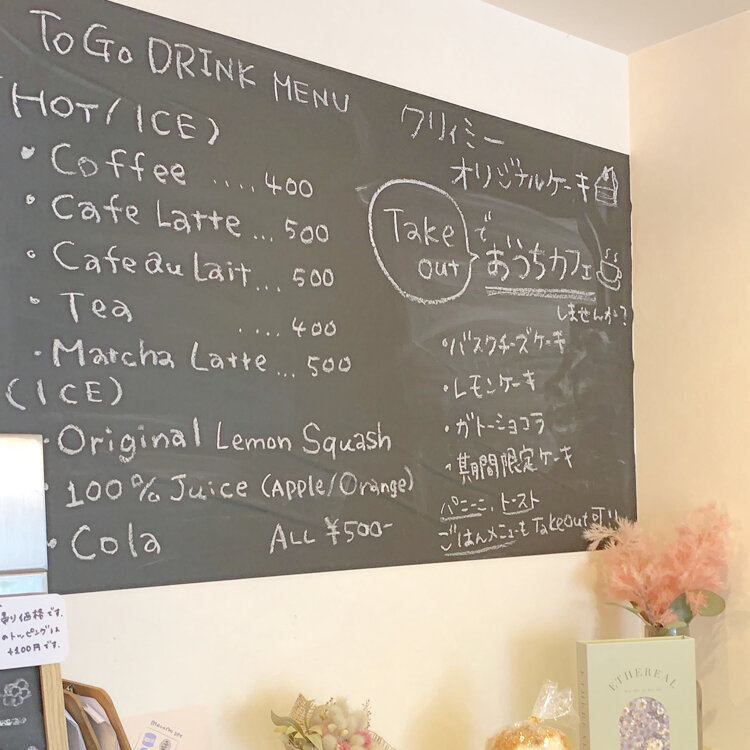 To Go DRINK MENU
(HOT/ICE)
・Coffee ....400
・Cafe Latte...500
・Cafe au Lait...500
・Tea ....400
・Matcha Latte...500
(ICE)
・Original Lemon Squash
・100% Juice (Apple/Orange)
・Cola ALL ¥500-
クリィミー
オリジナルケーキ
Take out で
おうちカフェ
しませんか?
・バスクチーズケーキ
・レモンケーキ
・ガトーショコラ
・期間限定ケーキ
パニーニ、トースト
ごはんメニューもTakeout可!!
り価格です。
のトッピングは
+100円です。
ETHEREAL